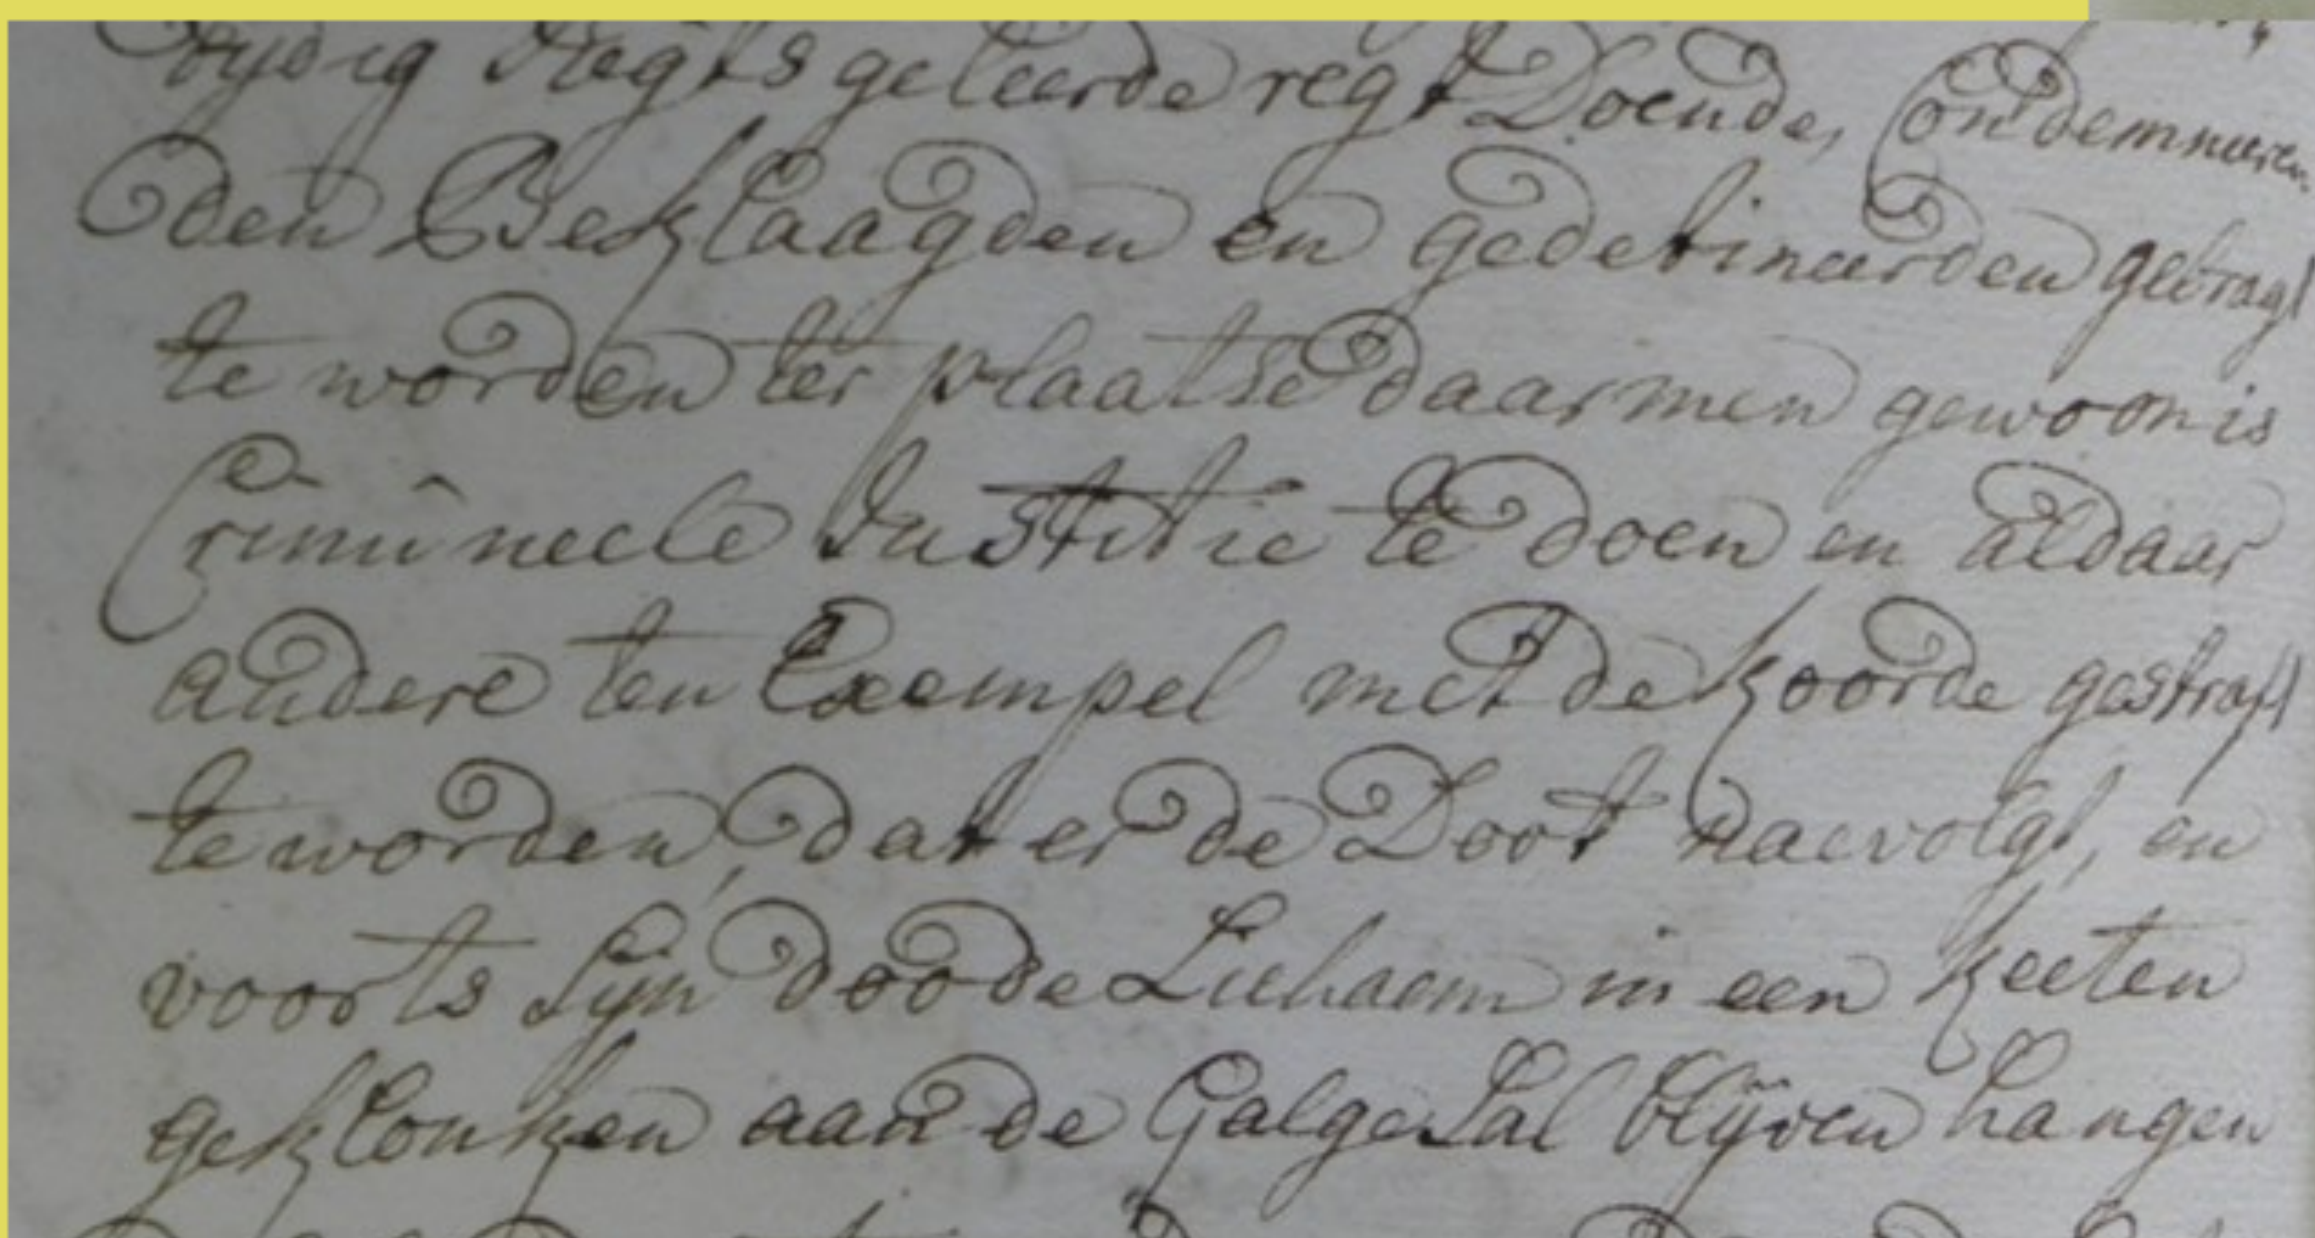 Regtsgeleerde regt Doende, Condemneeren
den Beklaagden en gedetineerden gebragt
te worden ter plaatse daar men gewoon is
Crimineele Justitie te doen en aldaar
andere ten Exempel met de koorde gestraft
te worden, dat er de Doot naevolgt, en
voorts Sijn doode Lichaem in een keeten
geklonken aan de Galge Sal blijven hangen